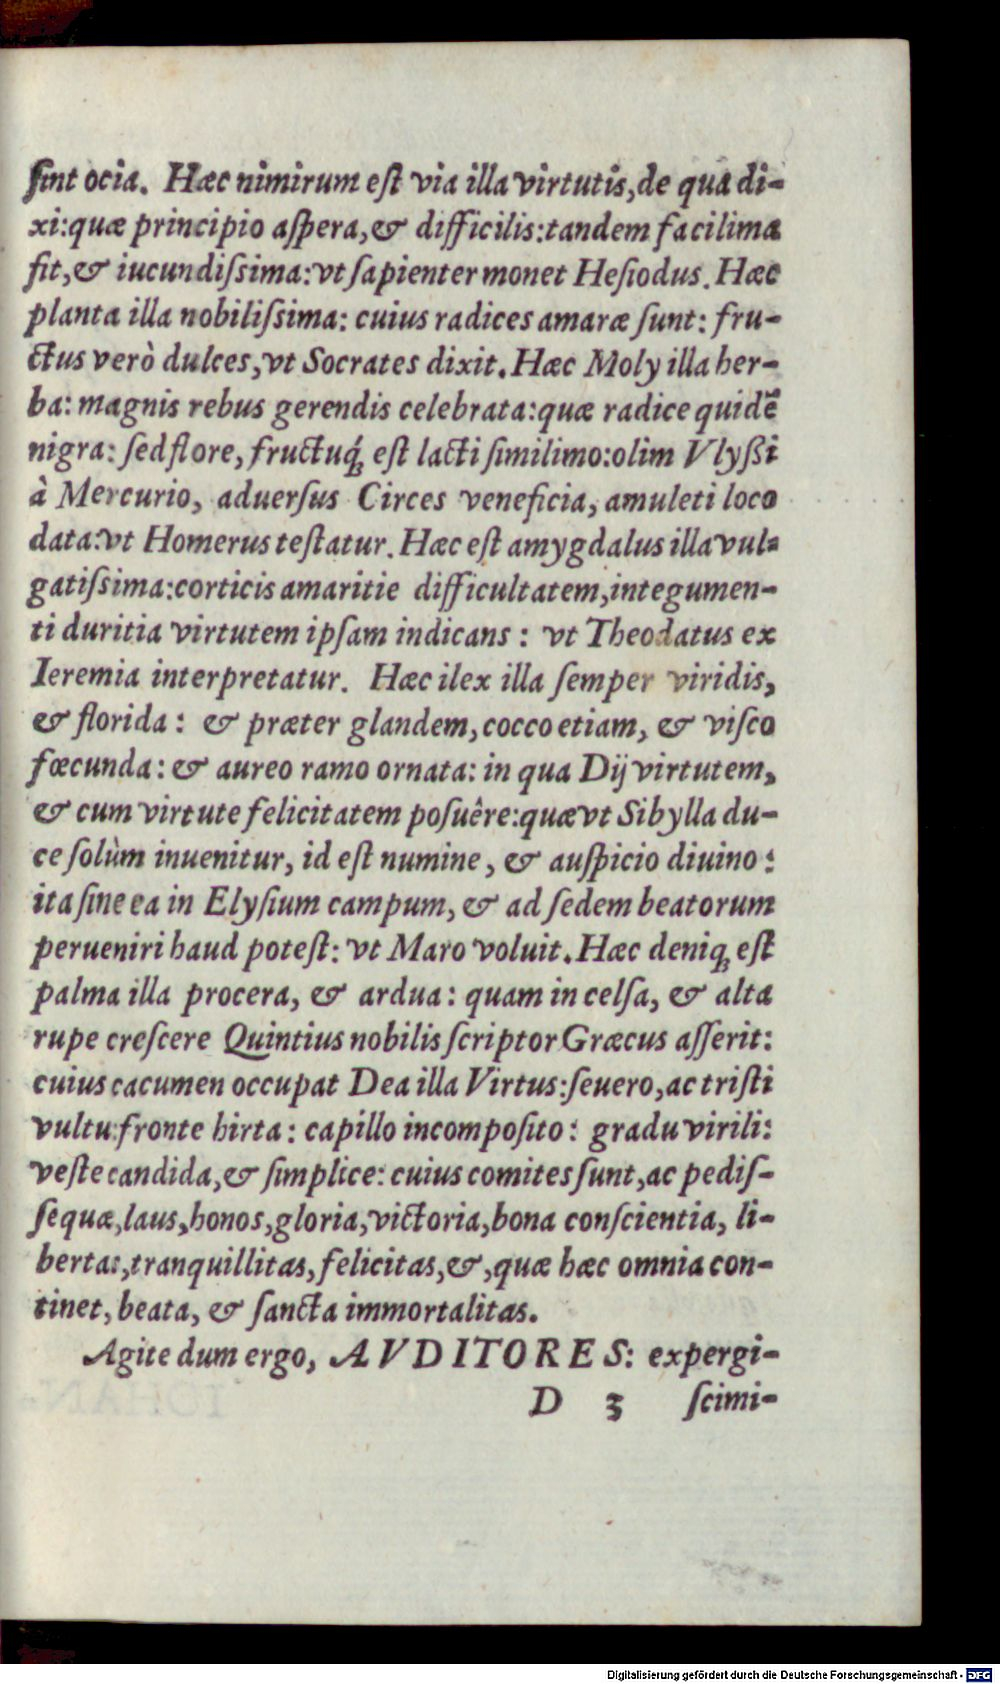 ſint ocia. Hæc nimirum eſt via illa virtutis, de qua di-
xi: quæ principio aſpera, & difficilis: tandem facilima
fit, & iucundiſsima: vt ſapienter monet Heſiodus. Hæc
planta illa nobiliſsima: cuius radices amaræ ſunt: fru-
ctus verò dulces, vt Socrates dixit. Hæc Moly illa her-
ba: magnis rebus gerendis celebrata: quæ radice quidē
nigra: ſed flore, fructuq́; eſt lacti ſimilimo: olim Vlyßi
à Mercurio, aduerſus Circes veneficia, amuleti loco
data: vt Homerus teſtatur. Hæc eſt amygdalus illa vul-
gatiſsima: corticis amaritie difficultatem, integumen-
ti duritia virtutem ipſam indicans: vt Theodatus ex
Ieremia interpretatur. Hæc ilex illa ſemper viridis,
& florida: & præter glandem, cocco etiam, & viſco
fœcunda: & aureo ramo ornata: in qua Dij virtutem,
& cum virtute felicitatem poſuêre: quæ vt Sibylla du-
ce ſolùm inuenitur, id eſt numine, & auſpicio diuino:
ita ſine ea in Elyſium campum, & ad ſedem beatorum
perueniri haud poteſt: vt Maro voluit. Hæc deniq; eſt
palma illa procera, & ardua: quam in celſa, & alta
rupe creſcere Quintius nobilis ſcriptor Græcus aſſerit:
cuius cacumen occupat Dea illa Virtus: ſeuero, ac triſti
vultu: fronte hirta: capillo incompoſito: gradu virili:
veſte candida, & ſimplice: cuius comites ſunt, ac pediſ-
ſequæ, laus, honos, gloria, victoria, bona conſcientia, li-
bertas, tranquillitas, felicitas, &, quæ hæc omnia con-
tinet, beata, & ſancta immortalitas.
Agite dum ergo, AVDITORES: expergi-
D 3 ſcimi-
Digitalisierung gefördert durch die Deutsche Forschungsgemeinschaft - DFG